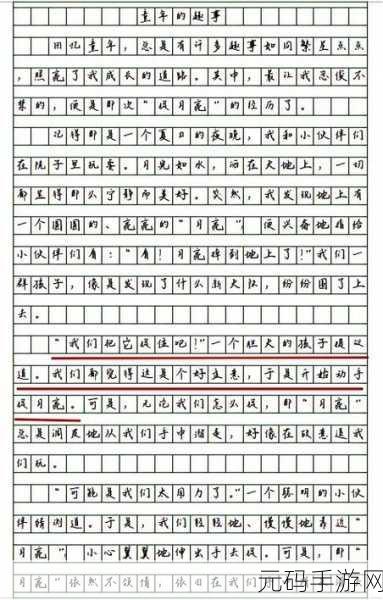 童年的趣事
回忆童年，总是有许多趣事如同繁星点点
，照亮了我成长的道路。其中，最让我忍俊不
禁的，便是那次“捉月亮”的经历了。
记得那是一个夏日的夜晚，我和小伙伴们
在院子里玩耍。月光如水，洒在大地上，一切
都显得那么宁静而美好。突然，我发现地上有
一个圆圆的、亮亮的“月亮”，便兴奋地指给
小伙伴们看：“看！月亮掉到地上了！”我们一
群孩子，像是发现了什么新大陆，纷纷围了上
去。
“我们把它捉住吧！”一个胆大的孩子提议
道。我们都觉得这是个好主意，于是开始动手
捉月亮。可是，无论我们怎么捉，那“月亮”
总是调皮地从我们手中溜走，好像在故意逗我
们玩。
“可能是我们太用力了。”一个聪明的小伙
伴猜测道。于是，我们轻轻地、慢慢地靠近“
月亮”，小心翼翼地伸出手去捉。可是，那“
月亮”依然不领情，依旧在我们
元码手游网